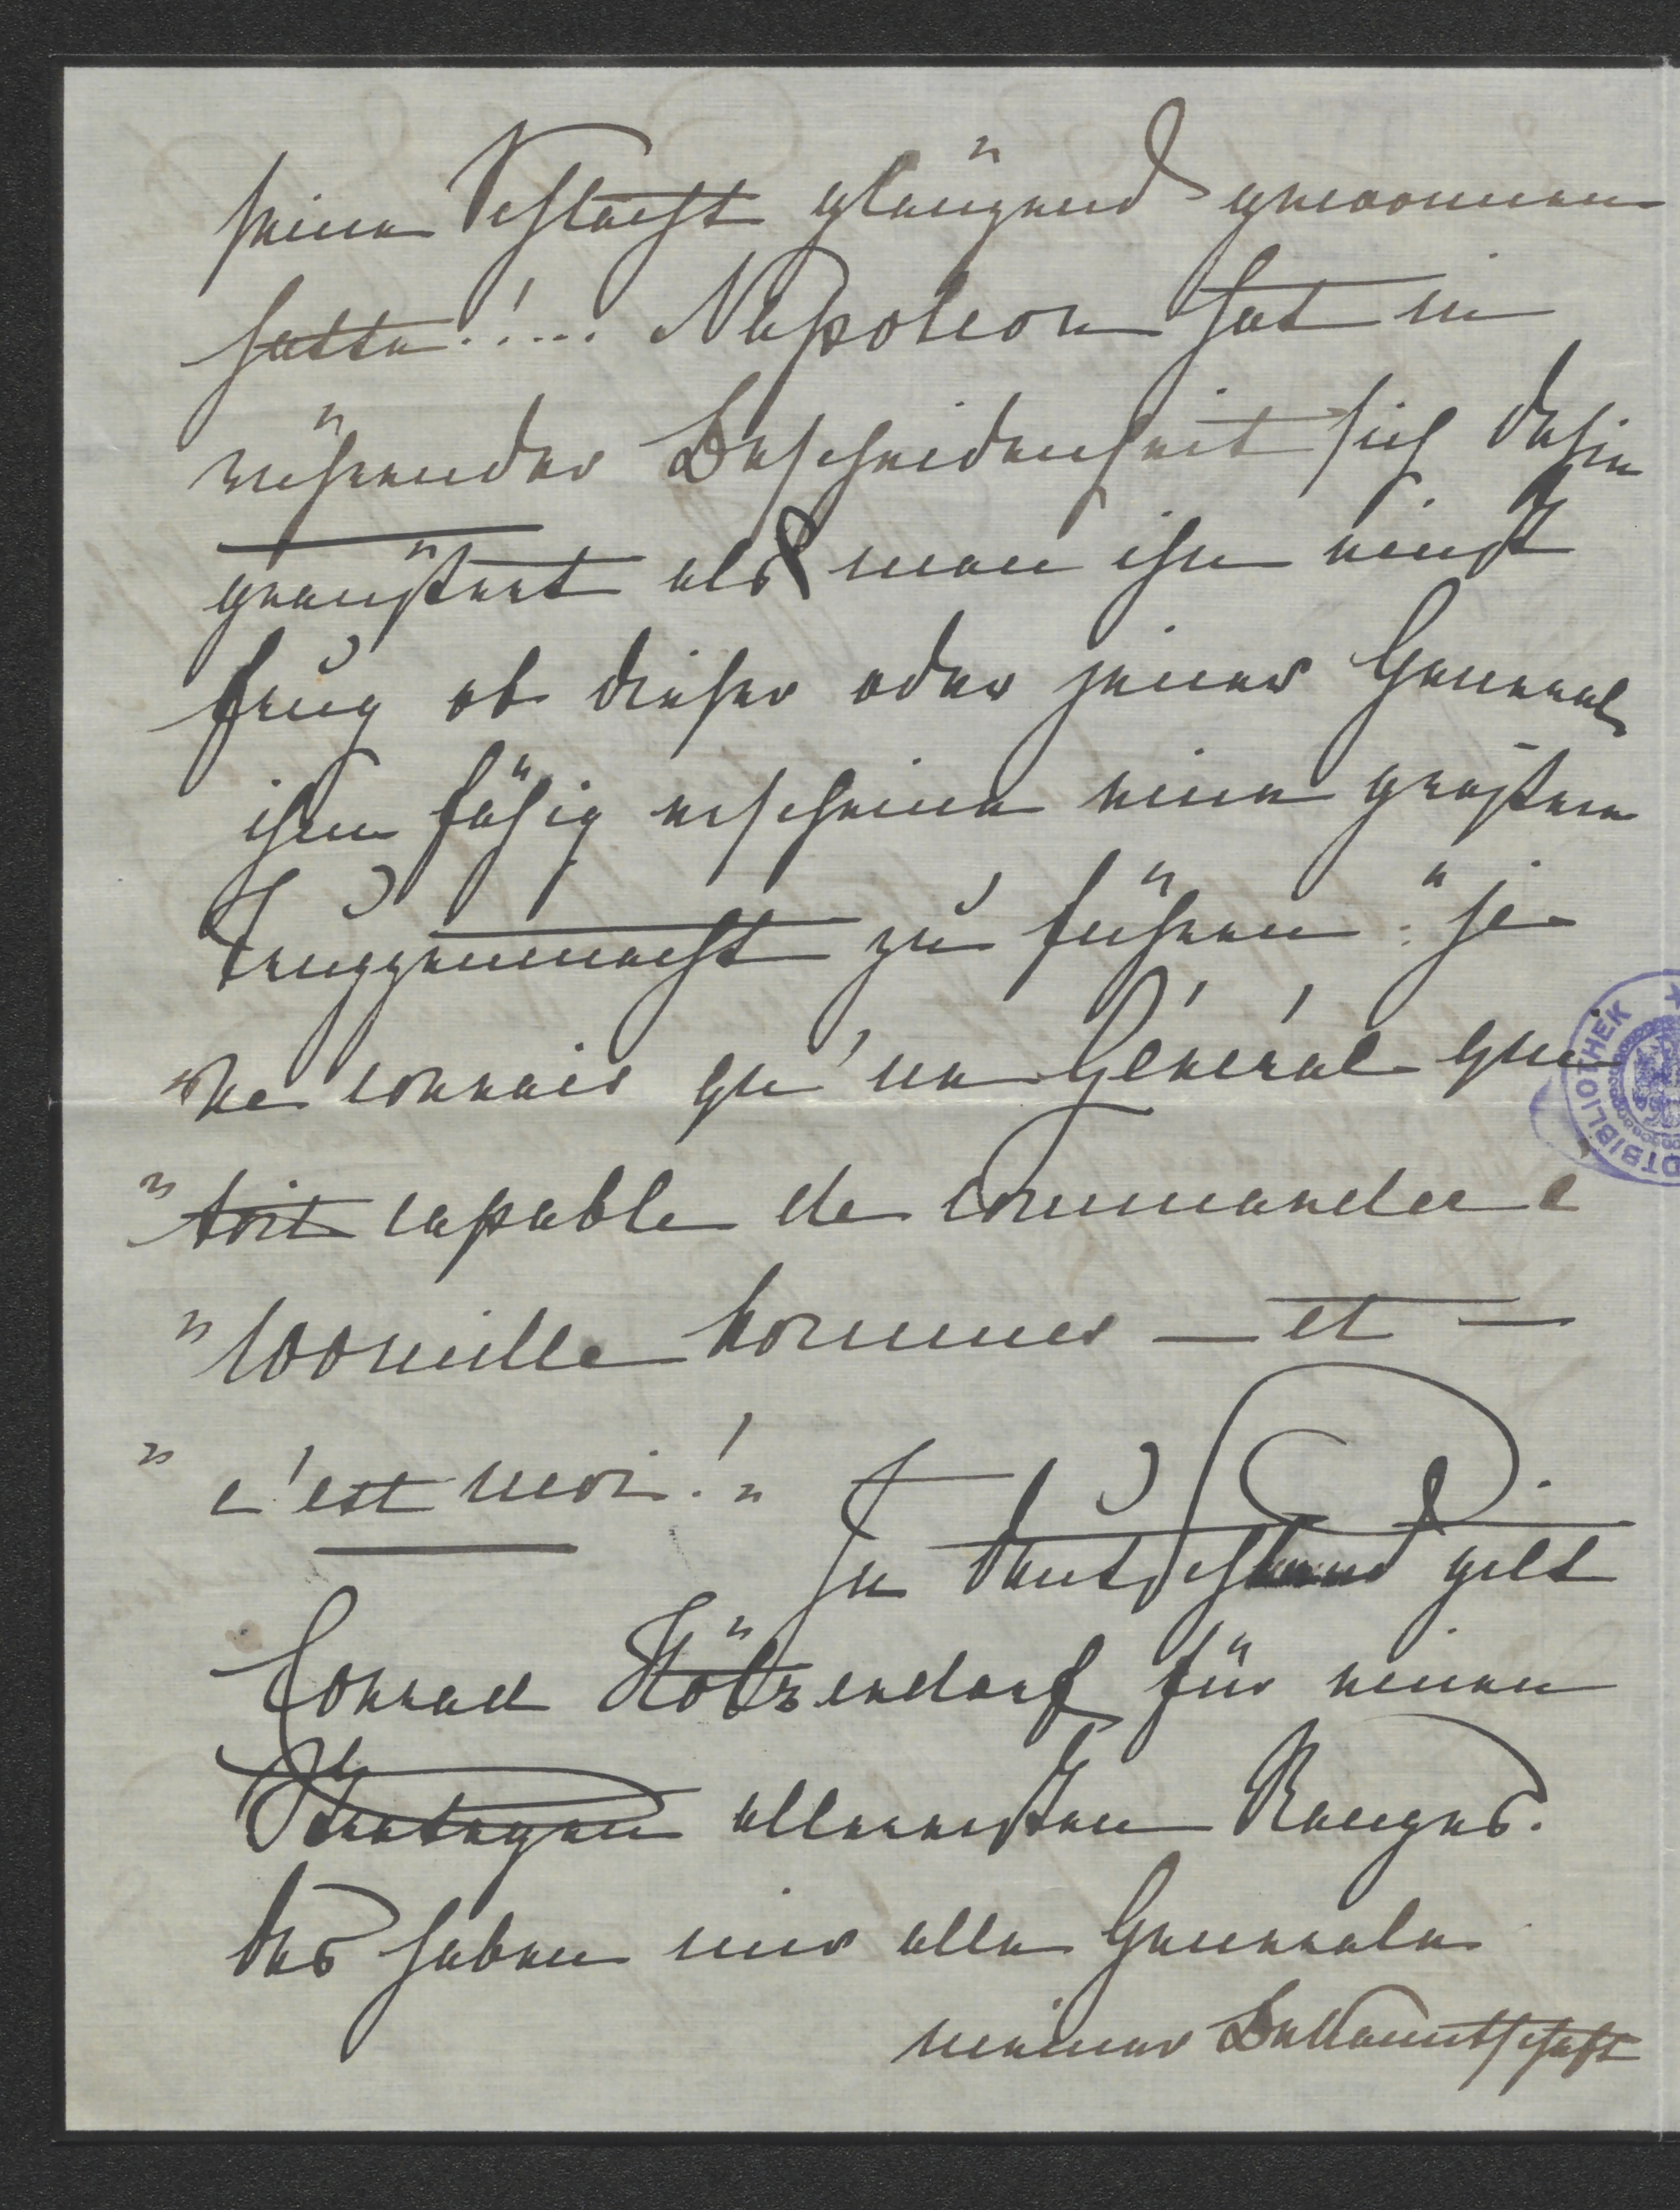 seine Schlacht glänzend gewonnen
hatte!.... Napoleon hat in
rührender Bescheidenheit sich dahin
geäußert als man ihn einst
frug ob dieser oder jener General
ihm fähig erscheine eine größere
Truppenmacht zu führen: "je
"ne connais qu'un Général qui
"soit capable de commander
"100 mille hommes — et —
"c'est moi!"
In Deutschland gilt
Conrad Hötzendorf für einen
Strategen allerersten Ranges.
Das haben mir alle Generale
meiner Bekanntschaft
OTSIBLIOTHEK